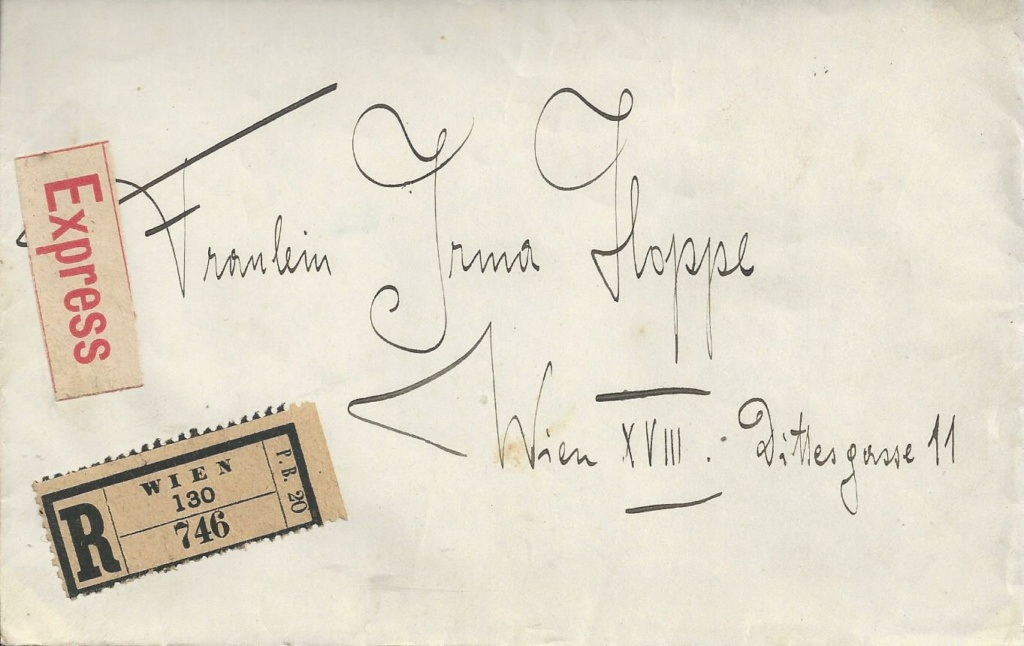 Express
Fräulein Irma Hoppe
Wien XVIII. Dittesgasse 11
R
WIEN
130
746
P.B. 20